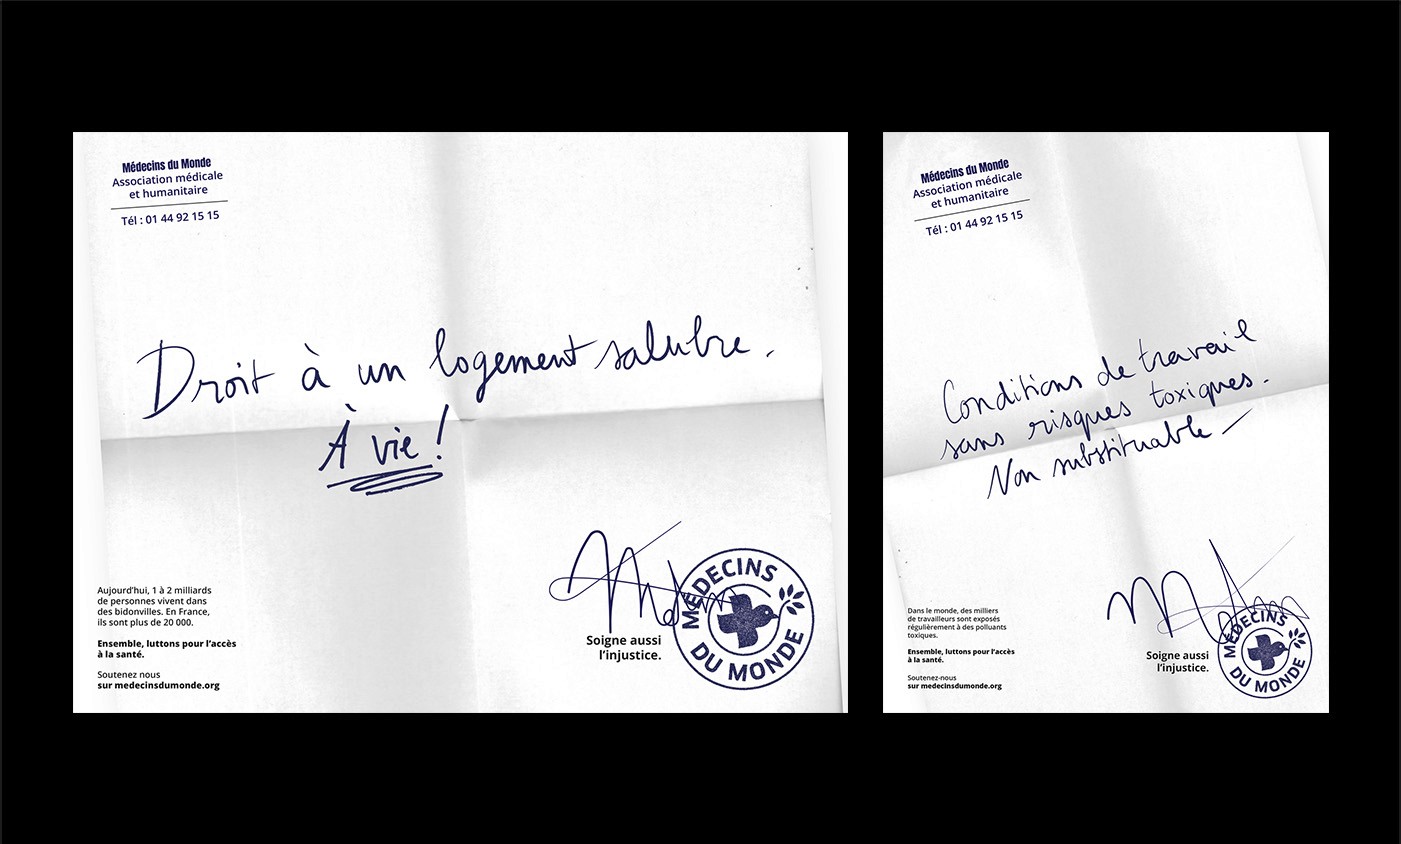 Médecins du Monde
Association médicale
et humanitaire
Tél : 01 44 92 15 15
Droit à un logement salubre.
À vie !
Aujourd'hui, 1 à 2 milliards
de personnes vivent dans
des bidonvilles. En France,
ils sont plus de 20 000.
Ensemble, luttons pour l'accès
à la santé.
Soutenez nous
sur medecinsdumonde.org
Soigne aussi
l'injustice.
MÉDECINS
DU MONDE
Médecins du Monde
Association médicale
et humanitaire
Tél : 01 44 92 15 15
Conditions de travail
sans risques toxiques.
Non substituable
Dans le monde, des milliers
de travailleurs sont exposés
régulièrement à des polluants
toxiques.
Ensemble, luttons pour l'accès
à la santé.
Soutenez-nous
sur medecinsdumonde.org
Soigne aussi
l'injustice.
MÉDECINS
DU MONDE